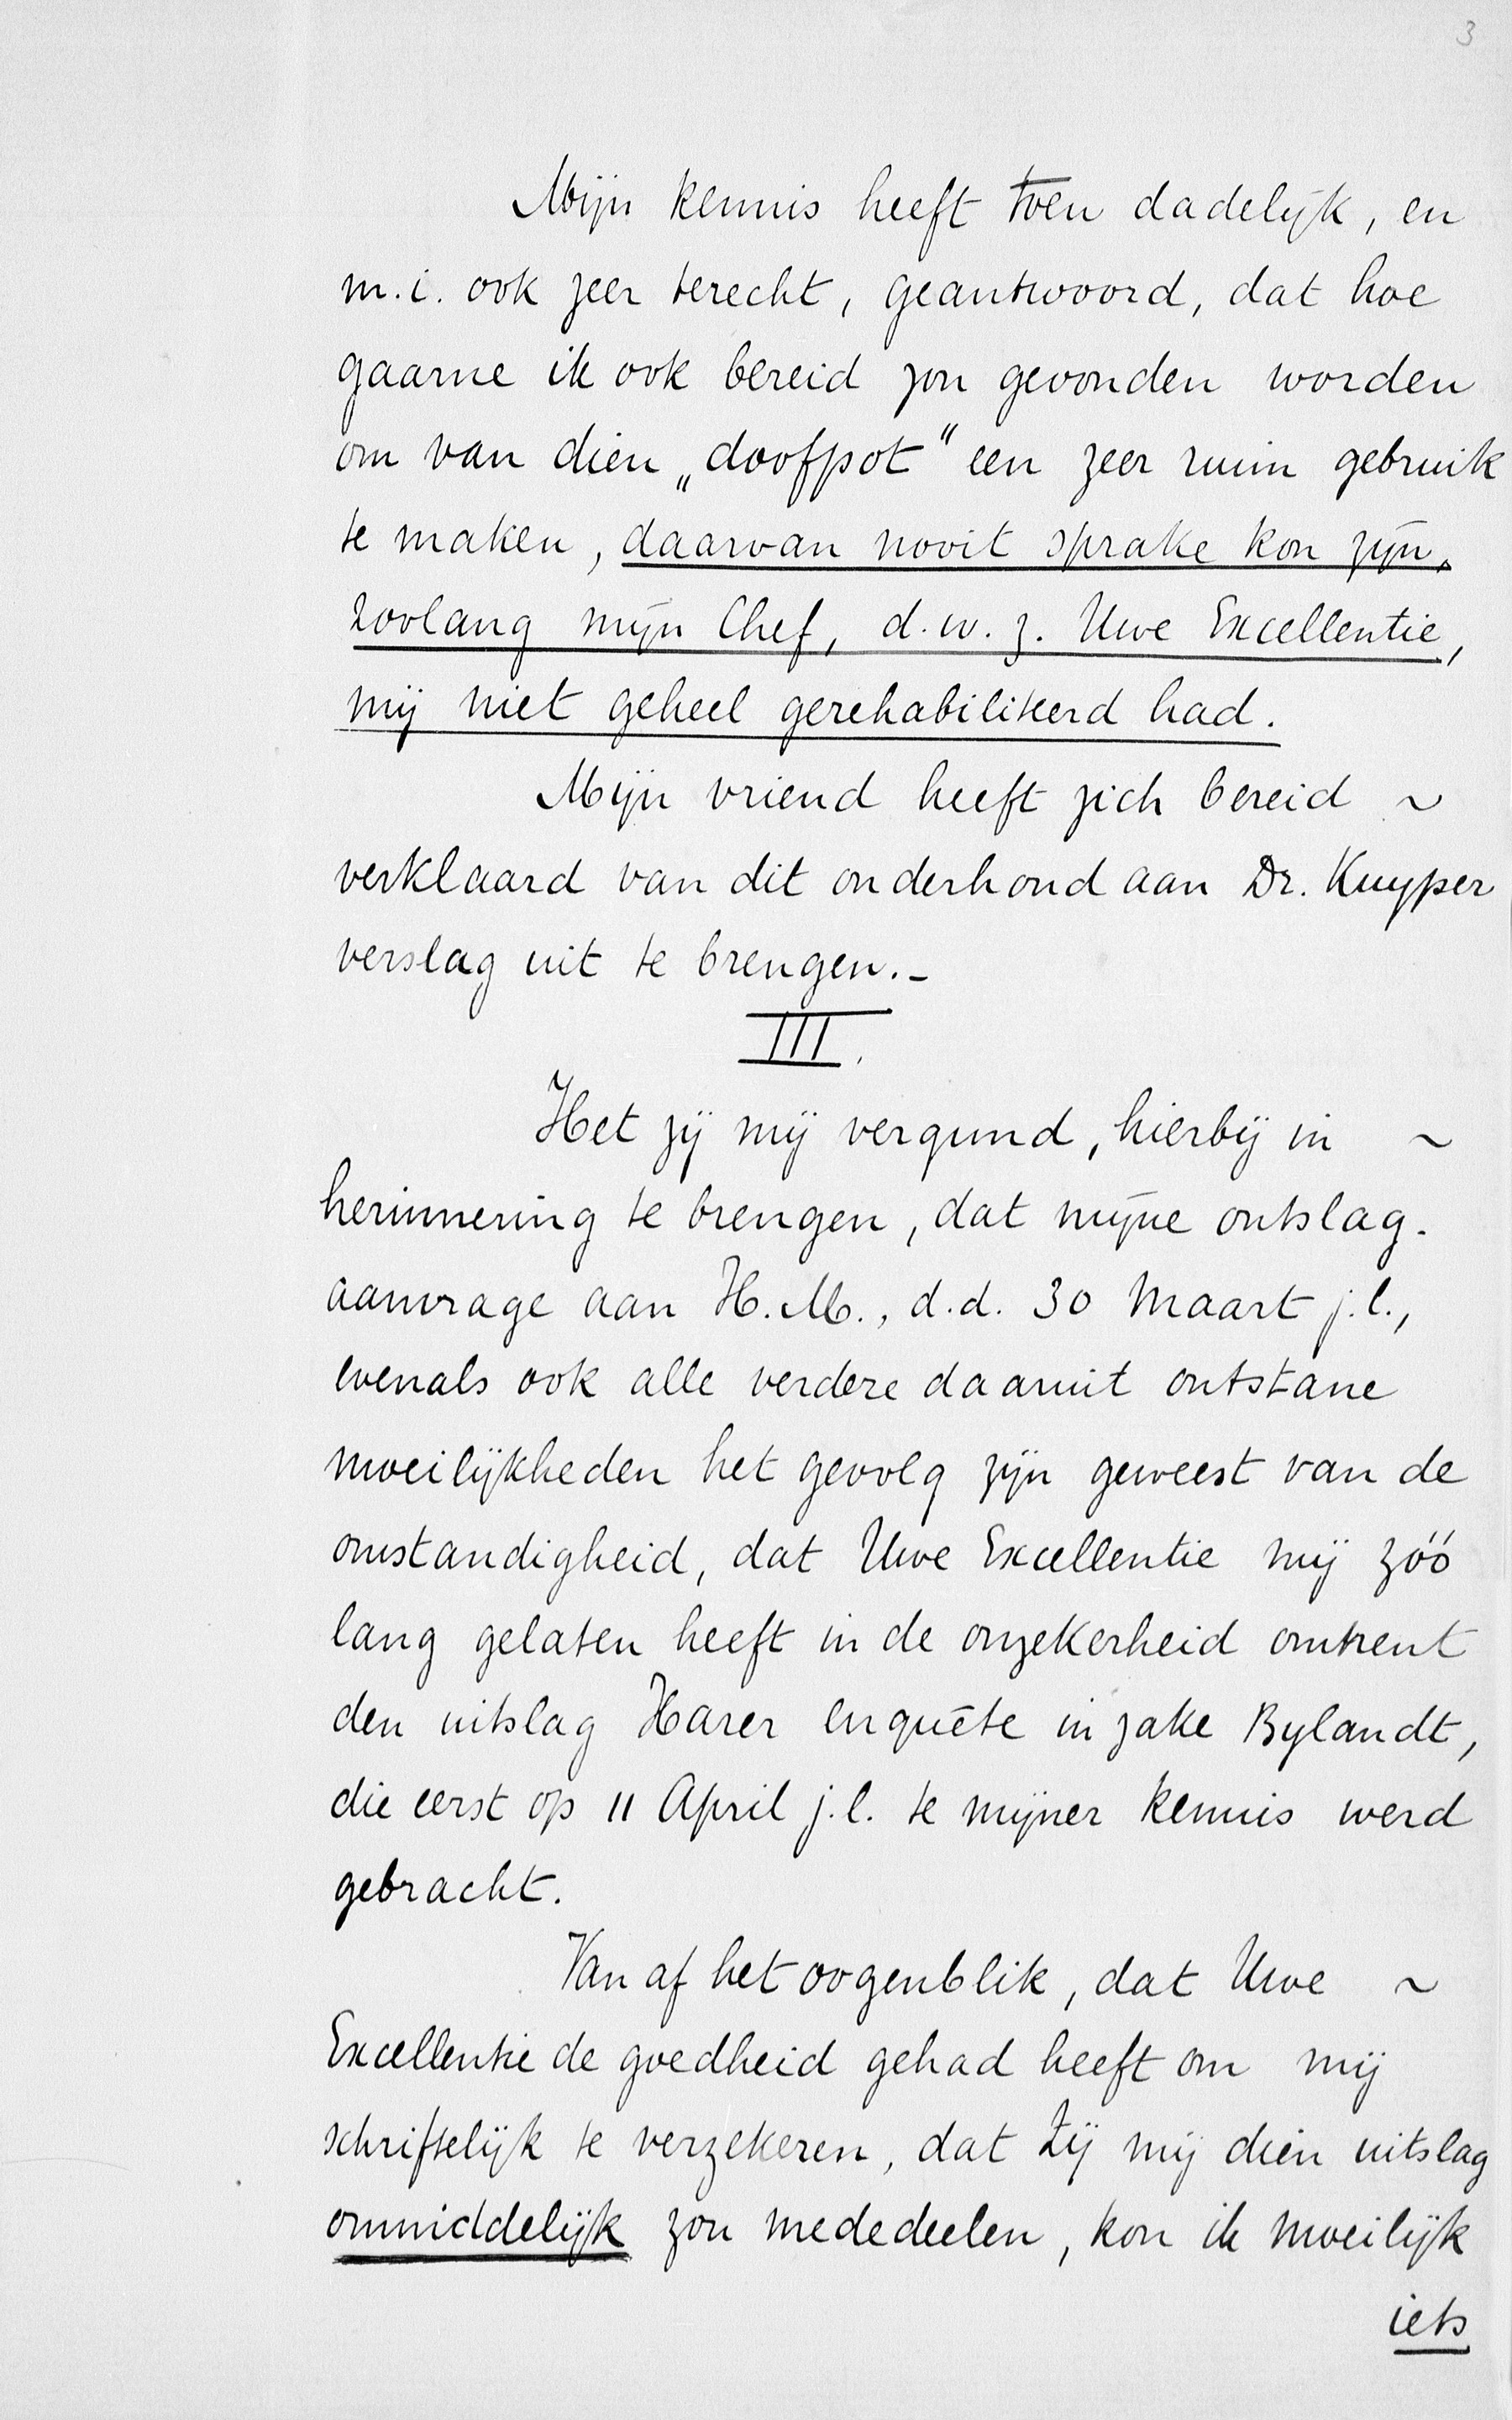 3
Mijn kennis heeft toen dadelijk, en
m.i. ook zeer terecht, geantwoord, dat hoe
gaarne ik ook bereid zou gevonden worden
om van dien „doofpot" een zeer ruim gebruik
te maken, daarvan nooit sprake kon zijn,
zoolang mijn Chef, d.w.z. Uwe Excellentie,
mij niet geheel gerehabiliteerd had.
Mijn vriend heeft zich bereid ~
verklaard van dit onderhoud aan Dr. Kuyper
verslag uit te brengen.-
III.
Het zij mij vergund, hierbij in ~
herinnering te brengen, dat mijne ontslag-
aanvrage aan H.M., d.d. 30 Maart j.l.,
evenals ook alle verdere daaruit ontstane
moeilijkheden het gevolg zijn geweest van de
omstandigheid, dat Uwe Excellentie mij zóó
lang gelaten heeft in de onzekerheid omtrent
den uitslag Harer enquête in zake Bylandt,
die eerst op 11 April j.l. te mijner kennis werd
gebracht.
Van af het oogenblik, dat Uwe ~
Excellentie de goedheid gehad heeft om mij
schriftelijk te verzekeren, dat Zij mij dien uitslag
onmiddelijk zou mededeelen, kon ik moeilijk
iets